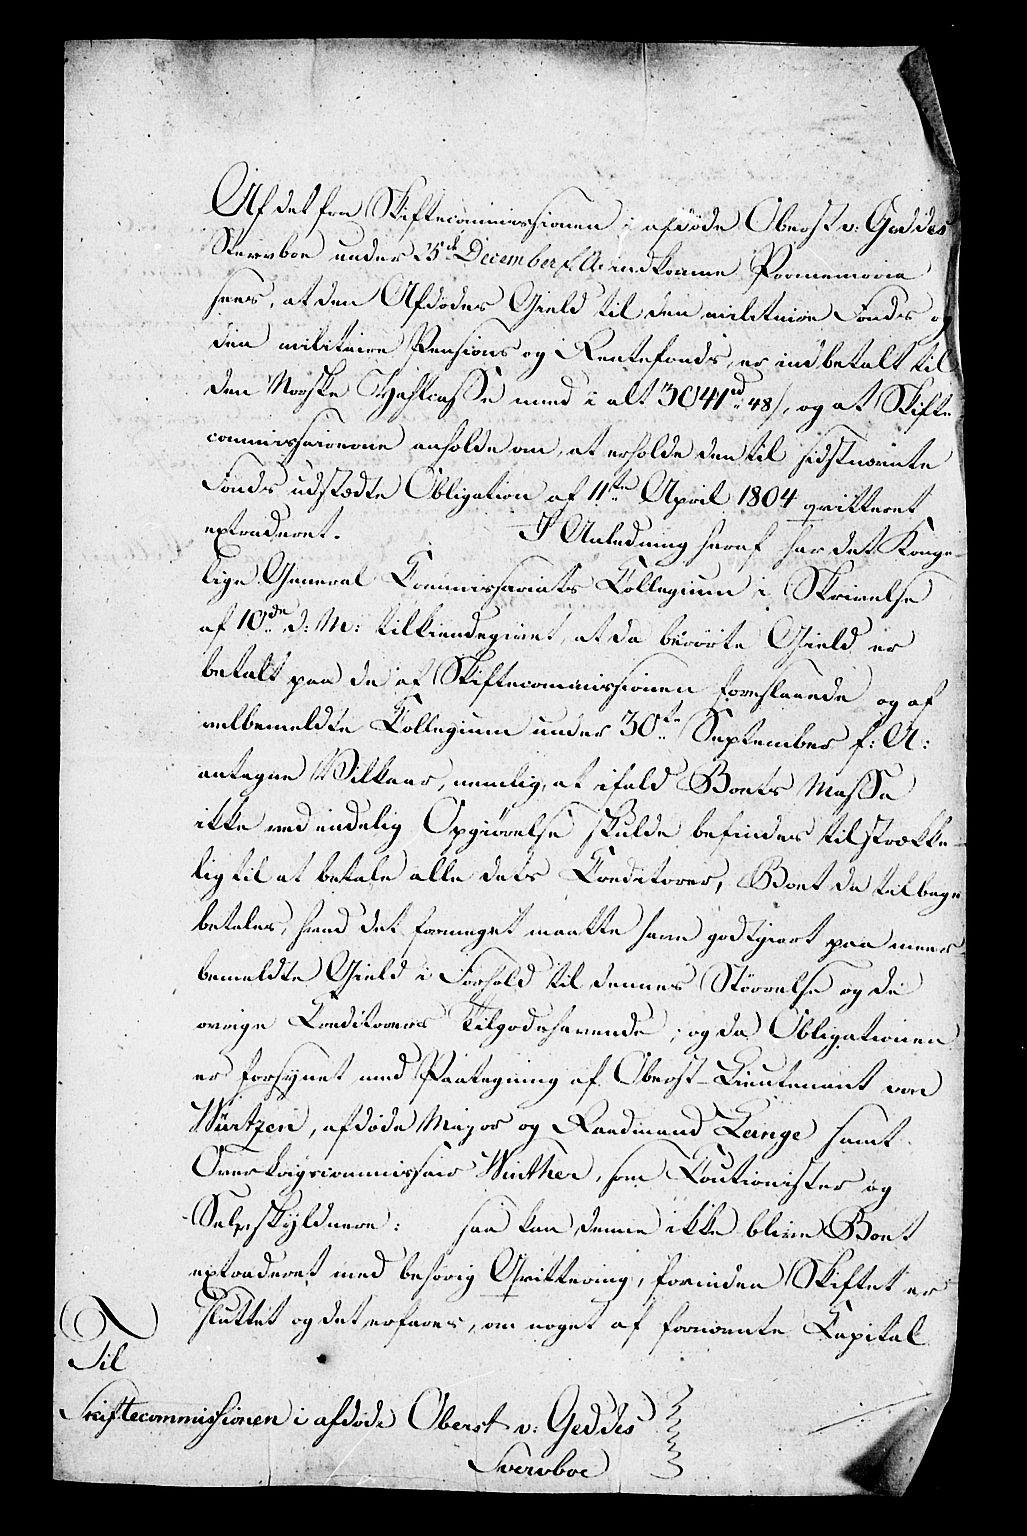 Af det fra Skiftecommissionen i afdøde Oberst v: Geddes
Stervboe under 25de December f. A: indkomne Promemoria
sees, at den Afdødes Gield til den militaire Fonds og
den militaire Pensions og Rentefonds, er indbetalt til
den Norske Hahlcasse med i alt 3041 rd 48 s, og at Skifte-
commissairerne anholde om, at erholde den til sidstnævnte
Fonds udstædte Obligation af 11te April 1804 qvitteret
extraderet. I Anledning heraf har det Konge-
lige General Commissariats Collegium i Skrivelse
af 10de d: M: tilkiendegivet, at da berørte Gield er
betalt paa de af Skiftecommissionen foreslaaede og af
velbemeldte Collegium under 30te September f: A:
antagne Vilkaar, nemlig, at ifald Boets Masse
ikke ved endelig Opgiørelse skulde befindes tilstrække-
lig til at betale alle dets Creditorer, Boet da tilbage
betales, hvad det formeget maatte have godtgiort paa meer-
bemeldte Gield i Forhold til dennes Størrelse og de
øvrige Creditorers Tilgodehavende; og da Obligationen
er forsynet med Paategning af Oberst-Lieutenant von
Würtzen, afdøde Major og Raadmand Lange samt
Overkrigscommissair Winther, som Cautionister og
Selvskyldnere: saa kan denne ikke blive Boet
extraderet med behørig Qvittering, forinden Skiftet er
sluttet og det erfares, om noget af fornævnte Capital
Til
Skiftecommissionen i afdøde Oberst v: Geddes
Stervboe